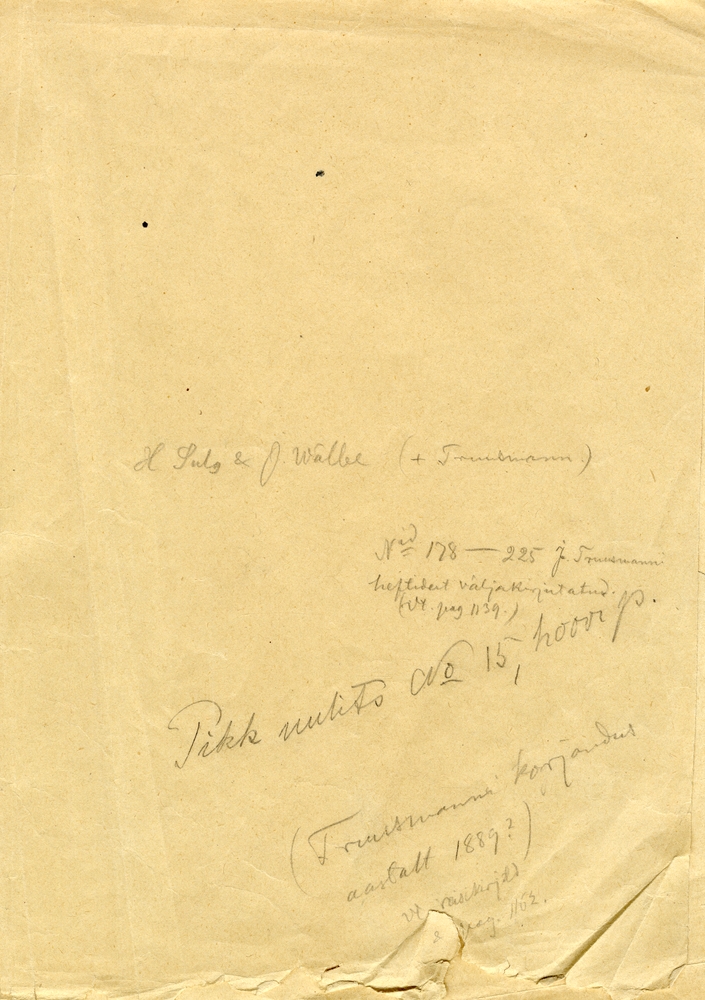 H Sulg & J. Wälbe (+ Truusmann.)
Nid 178 — 225 J. Truusmanni
heftidest väljakirjutatud.
(Vt. pag 1139.)
Pikk uulits No 15, hoovi p.
(Truusmanni korjandus
aastalt 1889?)
vt reisikirjeld
pag. 1162.